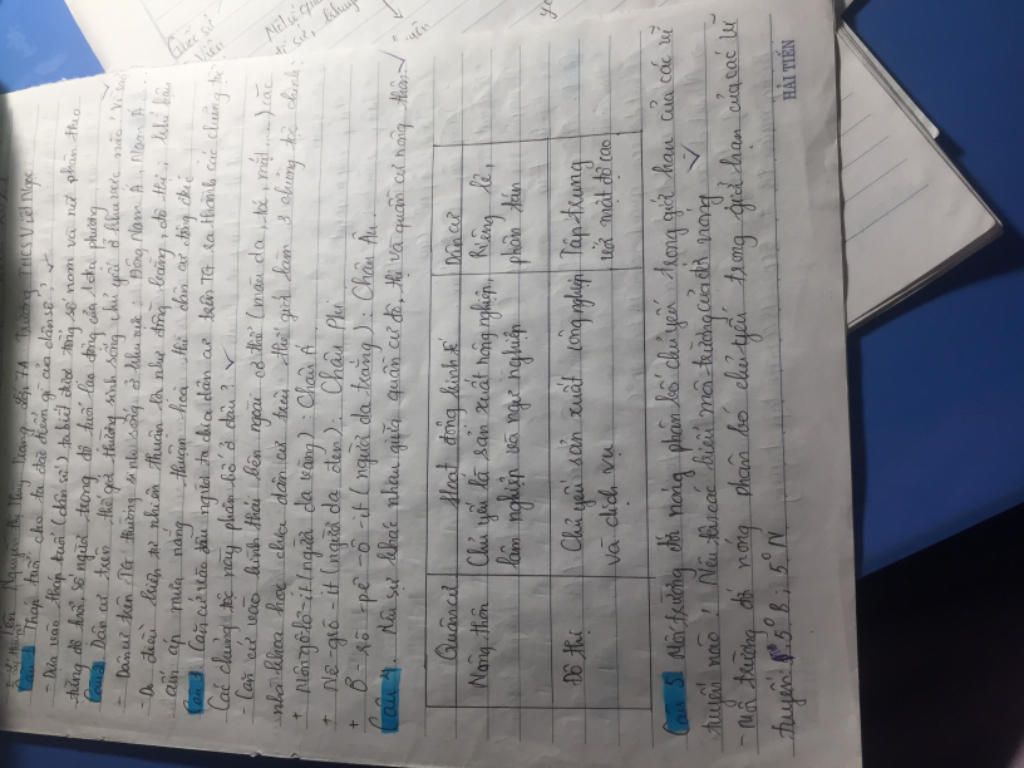 Nguyễn thị Thùy Trang lớp 7A Trường THCS Việt Ngọc
Câu 1 Tháp tuổi cho ta biết đặc điểm gì của dân số?
- Dựa vào tháp tuổi (dân số) ta biết được tổng số nam và nữ phân theo
từng độ tuổi số người trong độ tuổi lao động của 1 địa phương
Câu 2 Dân cư trên thế giới thường sinh sống chủ yếu ở khu vực nào? Vì sao
- Dân cư trên TG thường sinh sống ở khu vực: Đông Nam Á, Nam Á
- Do điều kiện tự nhiên thuận lợi như đồng bằng, đô thị, khí hậu
ấm áp mưa nắng thuận hòa thì dân cư đông đúc
Câu 3 Căn cứ vào đâu người ta chia dân cư trên TG ra thành các chủng tộc
Các chủng tộc này phân bố ở đâu?
- Căn cứ vào hình thái bên ngoài cơ thể (màu da, tóc, mắt, ...) các
nhà khoa học chia dân cư trên thế giới làm 3 chủng tộc chính:
+ Môn-gô-lô-it (người da vàng): Châu Á
+ Nê-grô-it (người da đen): Châu Phi
+ Ơ-rô-pê-ô-it (người da trắng): Châu Âu
Câu 4 Nêu sự khác nhau giữa quần cư đô thị và quần cư nông thôn:
Quần cư Hoạt động kinh tế Dân cư
Nông thôn Chủ yếu là sản xuất nông nghiệp, Riêng lẻ,
lâm nghiệp và ngư nghiệp phân tán
Đô thị Chủ yếu sản xuất công nghiệp Tập trung
và dịch vụ với mật độ cao
Câu 5 Môi trường đới nóng phân bố chủ yếu trong giới hạn của các vĩ
tuyến nào? Nêu tên các kiểu môi trường của đới nóng
- Môi trường đới nóng phân bố chủ yếu trong giới hạn của các vĩ
tuyến 5°B; 5°N
HẢI TIẾN